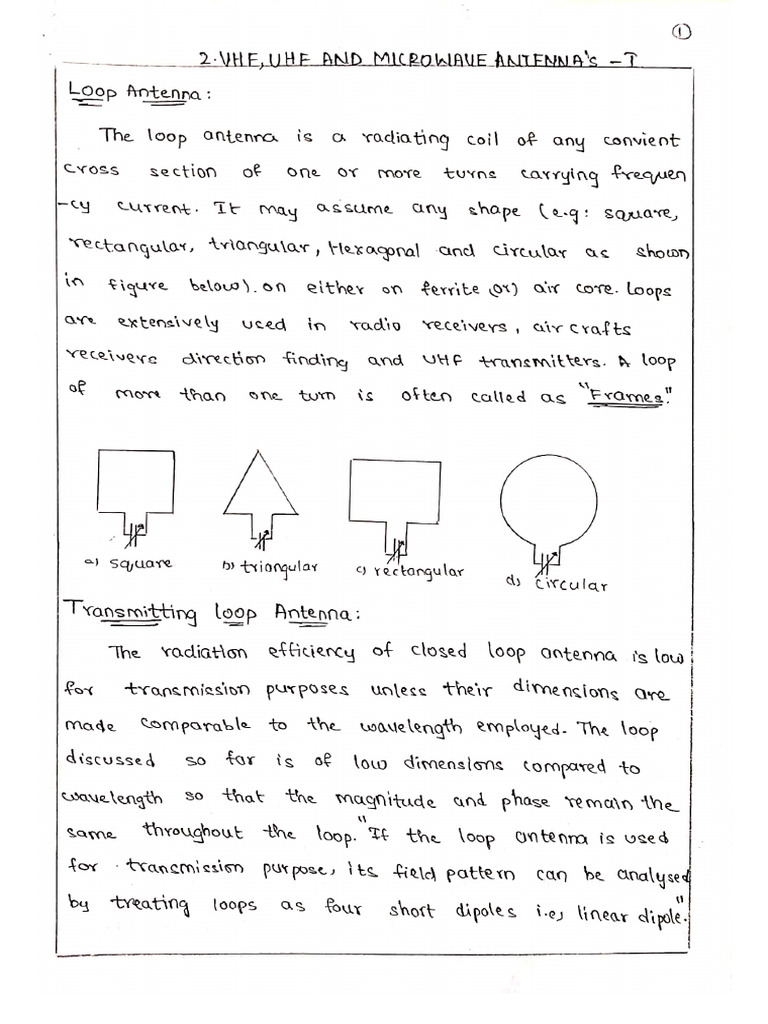 1
2. VHF, UHF AND MICROWAVE ANTENNA'S - I
Loop Antenna:
The loop antenna is a radiating coil of any convient
cross section of one or more turns carrying frequen
-cy current. It may assume any shape (e.g: square,
rectangular, triangular, Hexagonal and circular as shown
in figure below). on either on ferrite (or) air core. Loops
are extensively used in radio receivers, air crafts
receivers direction finding and UHF transmitters. A loop
of more than one turn is often called as "Frames".
a) square
b) triangular
c) rectangular
d) circular
Transmitting loop Antenna:
The radiation efficiency of closed loop antenna is low
for transmission purposes unless their dimensions are
made comparable to the wavelength employed. The loop
discussed so far is of low dimensions compared to
wavelength so that the magnitude and phase remain the
same throughout the loop. "If the loop antenna is used
for transmission purpose, its field pattern can be analysed
by treating loops as four short dipoles i.e, linear dipole."